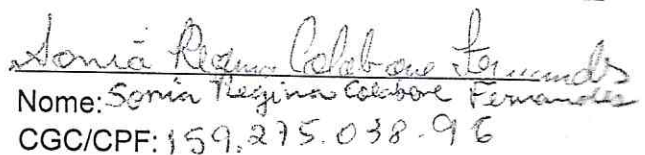 Sonia Regina Colabone Fernandes
Nome: Sonia Regina Colabone Fernandes
CGC/CPF: 159.275.038-96